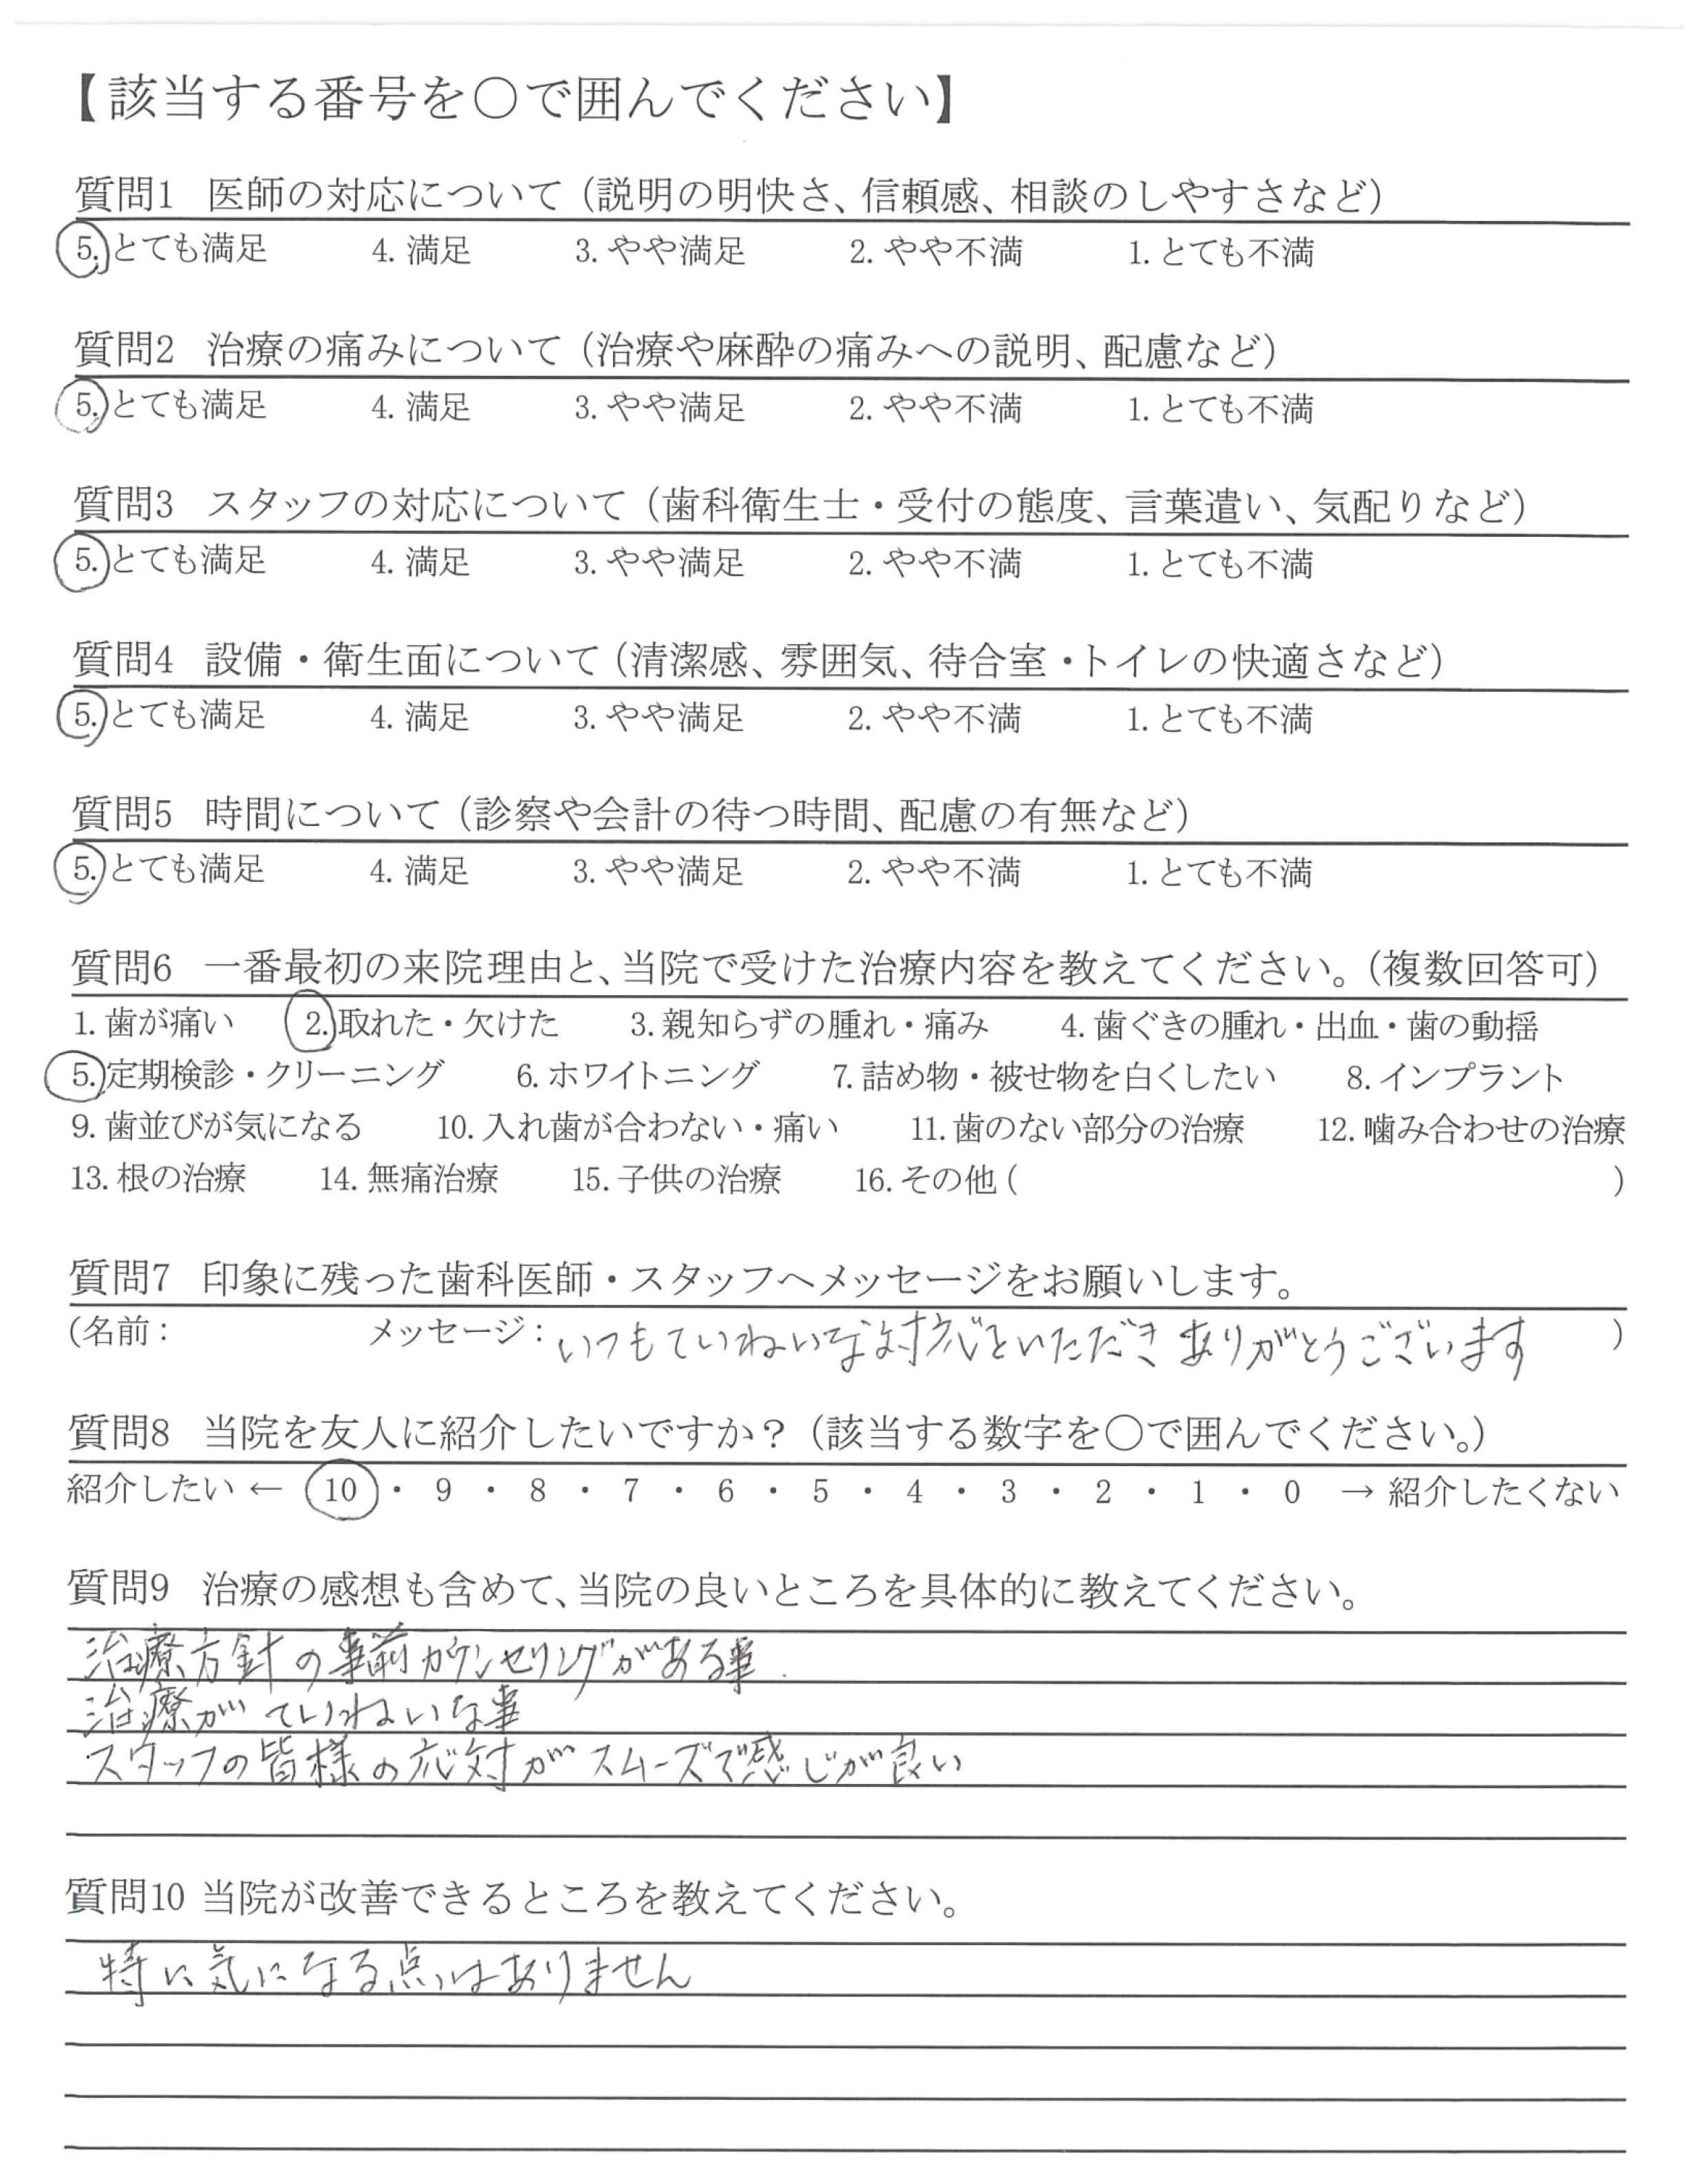 【該当する番号を〇で囲んでください】
質問1 医師の対応について（説明の明快さ、信頼感、相談のしやすさなど）
5. とても満足 4. 満足 3. やや満足 2. やや不満 1. とても不満
質問2 治療の痛みについて（治療や麻酔の痛みへの説明、配慮など）
5. とても満足 4. 満足 3. やや満足 2. やや不満 1. とても不満
質問3 スタッフの対応について（歯科衛生士・受付の態度、言葉遣い、気配りなど）
5. とても満足 4. 満足 3. やや満足 2. やや不満 1. とても不満
質問4 設備・衛生面について（清潔感、雰囲気、待合室・トイレの快適さなど）
5. とても満足 4. 満足 3. やや満足 2. やや不満 1. とても不満
質問5 時間について（診察や会計の待つ時間、配慮の有無など）
5. とても満足 4. 満足 3. やや満足 2. やや不満 1. とても不満
質問6 一番最初の来院理由と、当院で受けた治療内容を教えてください。（複数回答可）
1. 歯が痛い 2. 取れた・欠けた 3. 親知らずの腫れ・痛み 4. 歯ぐきの腫れ・出血・歯の動揺
5. 定期検診・クリーニング 6. ホワイトニング 7. 詰め物・被せ物を白くしたい 8. インプラント
9. 歯並びが気になる 10. 入れ歯が合わない・痛い 11. 歯のない部分の治療 12. 噛み合わせの治療
13. 根の治療 14. 無痛治療 15. 子供の治療 16. その他 ( )
質問7 印象に残った歯科医師・スタッフへメッセージをお願いします。
(名前： メッセージ：いつもていねいな対応をいただきありがとうございます )
質問8 当院を友人に紹介したいですか？（該当する数字を〇で囲んでください。）
紹介したい ← 10 ・ 9 ・ 8 ・ 7 ・ 6 ・ 5 ・ 4 ・ 3 ・ 2 ・ 1 ・ 0 → 紹介したくない
質問9 治療の感想も含めて、当院の良いところを具体的に教えてください。
治療方針の事前カウンセリングがある事.
治療がていねいな事
スタッフの皆様の応対がスムーズで感じが良い
質問10 当院が改善できるところを教えてください。
特に気になる点はありません